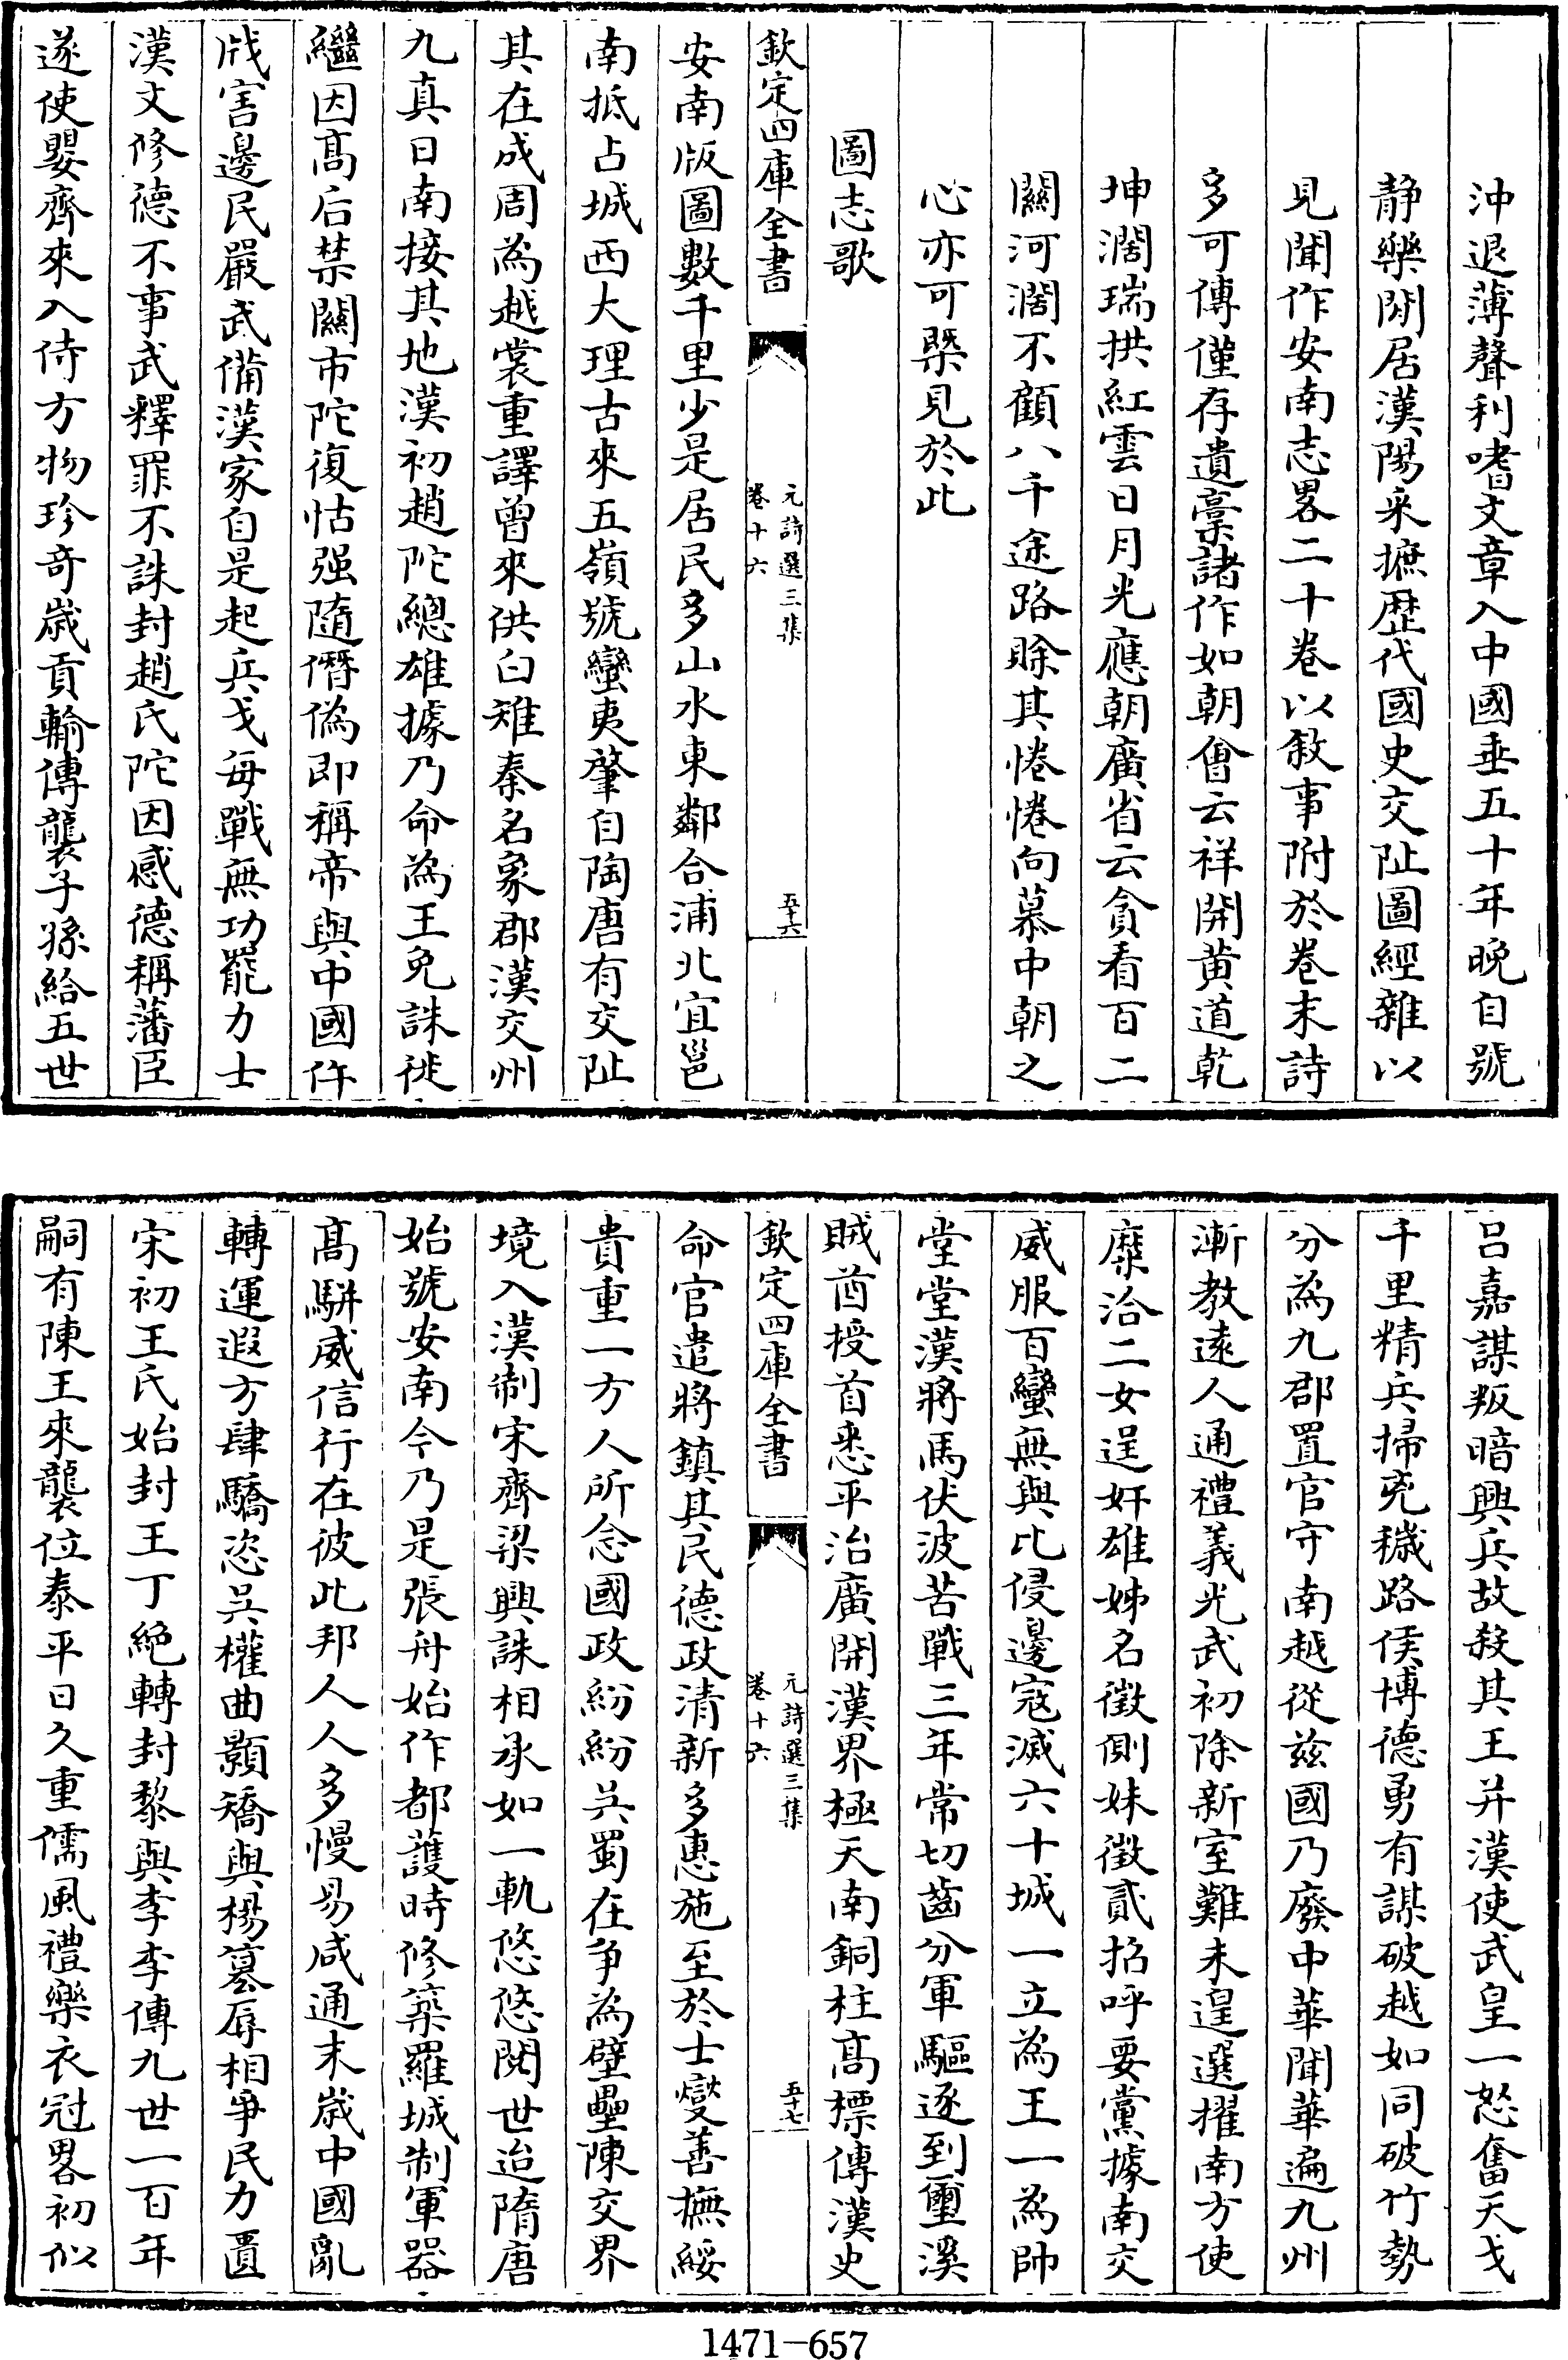 沖退薄聲利嗜文章入中國垂五十年晚自號
靜樂閒居漢陽采摭歴代國史交阯圖經雜以
見聞作安南志畧二十卷以敘事附於卷末詩
多可傳僅存遺稾諸作如朝會云祥開黄道乾
坤濶瑞拱紅雲日月光應朝廣省云貪看百二
關河濶不顧八千途路賒其惓惓向慕中朝之
心亦可槩見於此
圖志歌
欽定四庫全書
元詩選三集
卷十六
五十六
安南版圖數千里少是居民多山水東鄰合浦北宜邕
南抵占城西大理古來五嶺號蠻夷肇自陶唐有交阯
其在成周為越裳重譯曾來供白雉秦名象郡漢交州
九真日南接其地漢初趙陀總雄據乃命為王免誅徙
繼因高后禁關市陀復怙强隨僭偽即稱帝與中國仵
戕害邊民嚴武備漢家自是起兵戈每戰無功罷力士
漢文修德不事武釋罪不誅封趙氏陀因感德稱藩臣
遂使嬰齊來入侍方物珍奇歲貢輸傳襲子孫給五世
吕嘉謀叛暗興兵故殺其王并漢使武皇一怒奮天戈
千里精兵掃兇穢路侯博德勇有謀破越如同破竹勢
分為九郡置官守南越從兹國乃廢中華聞華遍九州
漸教遠人通禮義光武初除新室難未遑選擢南方使
糜泠二女逞奸雄姊名徵側妹徵貳招呼要黨據南交
威服百蠻無與比侵邊寇滅六十城一立為王一為帥
堂堂漢將馬伏波苦戰三年常切齒分軍驅逐到壐溪
賊酋授首悉平治廣開漢界極天南銅柱高標傳漢史
欽定四庫全書
元詩選三集
卷十六
五十七
命官遣將鎮其民德政清新多惠施至於士燮善撫綏
貴重一方人所念國政紛紛吳蜀在爭為壁壘陳交界
境入漢制宋齊梁興誅相承如一軌悠悠閱世迨隋唐
始號安南今乃是張舟始作都護時修築羅城制軍器
高駢威信行在彼此邦人人多慢易咸通末歲中國亂
轉運遐方肆驕恣吳權曲顥矯與楊篡辱相爭民力匱
宋初王氏始封王丁絶轉封黎與李李傳九世一百年
嗣有陳王來襲位泰平日久重儒風禮樂衣冠畧初似
1471-657